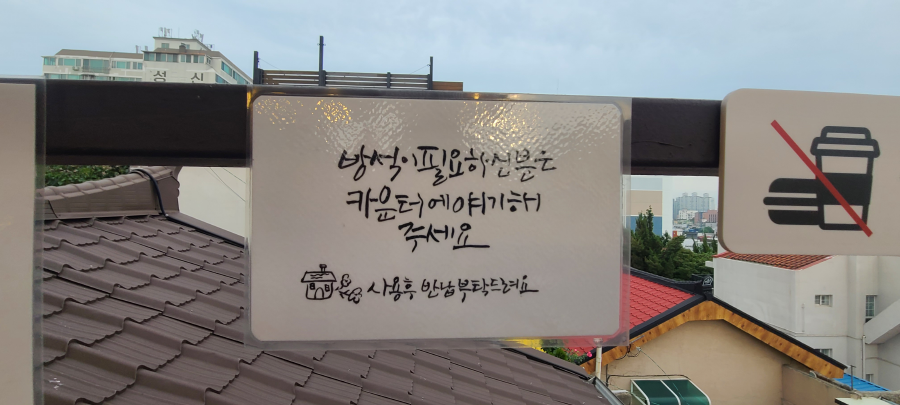 성신
방석이 필요하신분은
카운터에 얘기해
주세요
사용후 반납 부탁드려요